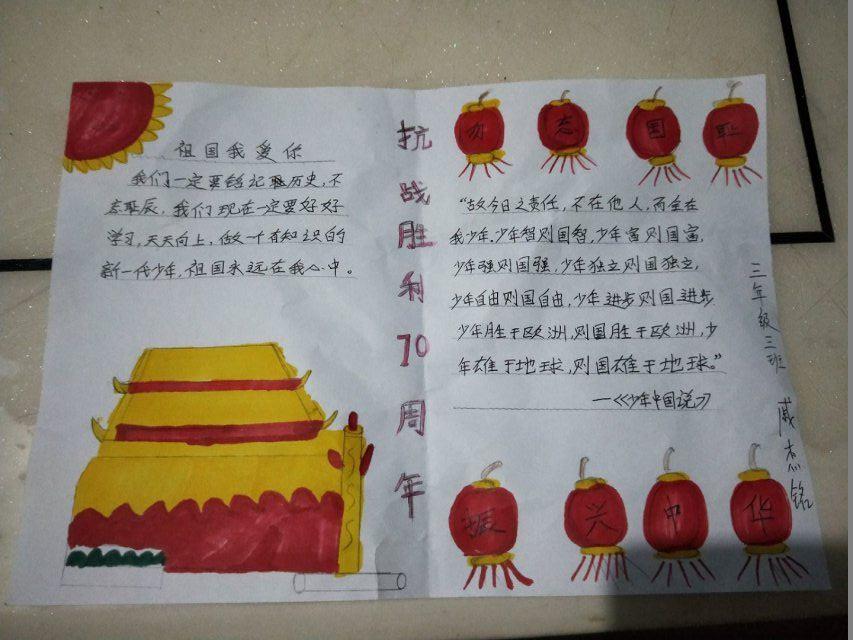 祖国我爱你
我们一定要铭记历史,不
忘耻辰,我们现在一定要好好
学习,天天向上,做一个有知识的
新一代少年,祖国永远在我心中。
抗战胜利70周年
勿忘国耻
“故今日之责任,不在他人,而全在
我少年,少年智则国智,少年富则国富,
少年强则国强,少年独立则国独立,
少年自由则国自由,少年进步则国进步
少年胜于欧洲,则国胜于欧洲,少
年雄于地球,则国雄于地球。”
—《少年中国说》
振兴中华
三年级三班 戚杰铭